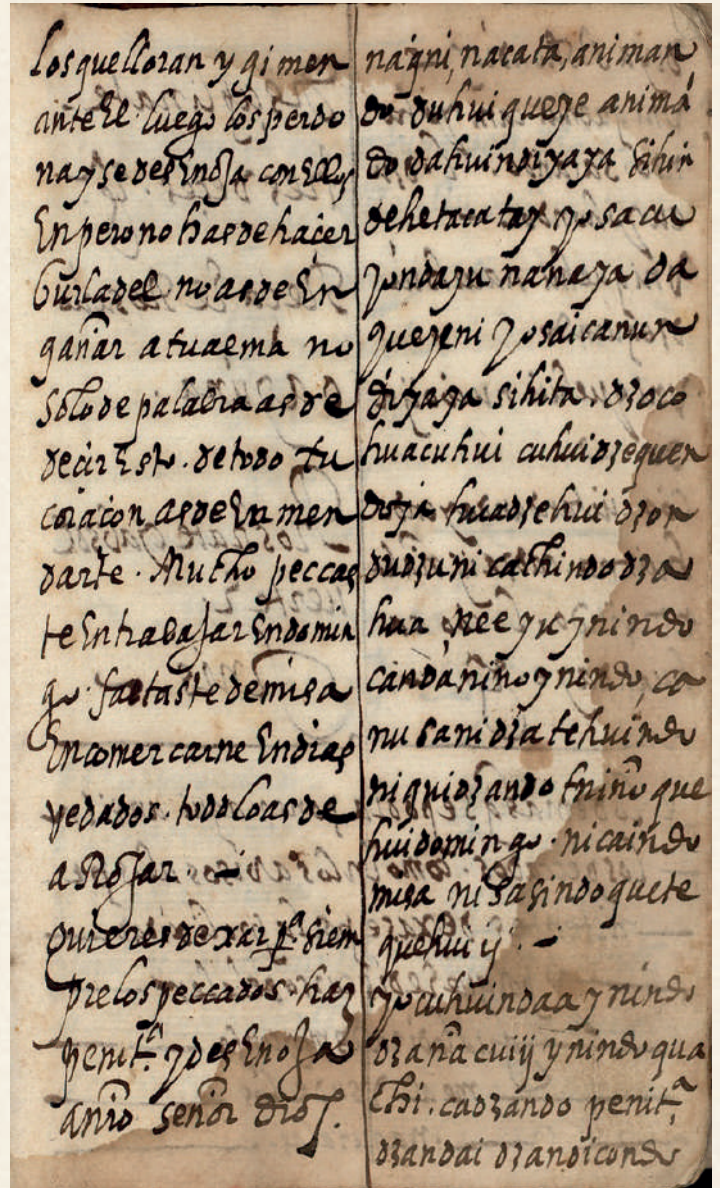 los que lloran y gimen
ante El luego los perdo
na y se desEnoJa con Ellos
Enpero no has de hacer
burla del no as de En
gañar a tu aema no
solo de palabra as de
decir Esto. de todo tu
coraçon as de Enmen
darte. Mucho peccas
te En trabaJar En domin
go. faltaste de misa
En comer carne En dias
vedados. todo lo as de
a RoJar. -
quieres dexar pa siem
pre los peccados. haz
penita. y desEnoJa
a nro señor dios.
nagni, nacata, animan
do duhui queye anima
do dahuindiyaya sihin
dehetacatay yosacu
yondayu nanaya da
queyeni yosaicanun
diyaya sihita. dzoco
huacuhui cuhuidzequen
huadzehui dzon
dudzuni cachindo dza
hua, nee yu ynindo
canda nino ynindo, ca
nu sani dza tehuindo
ni quidzando tnino que
hui domingo. nicaindo
misa ni sasindo quete
quehui ij. -
yocuhuindaa ynindo
dzana cuiij ynindo qua
chi. cadzando penita.
dzandai dzandicondo